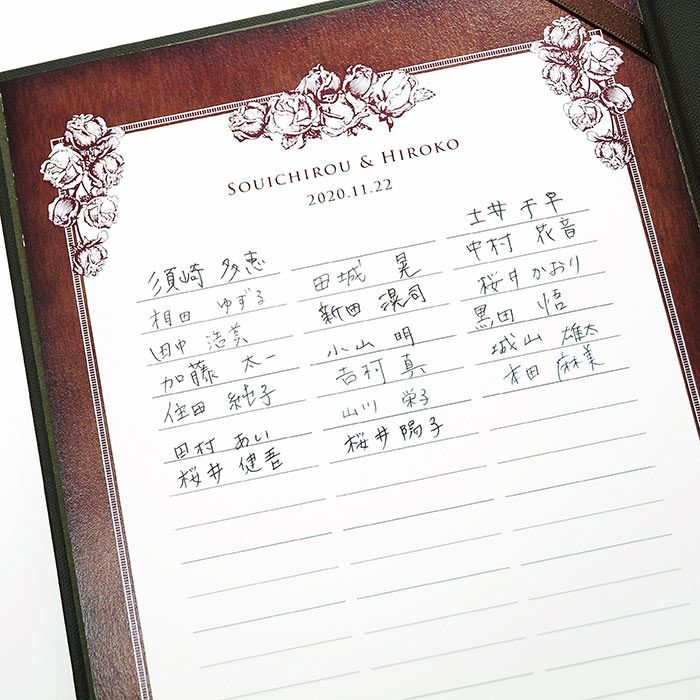 SOUICHIROU & HIROKO
2020.11.22
須崎 多恵
相田 ゆずる
田中 浩美
加藤 太一
住田 純子
田村 あい
桜井 健吾
田城 晃
新田 滉司
小山 明
吉村 真
山川 栄子
桜井陽子
土井 千早
中村 花音
桜井かおり
黒田 悟
城山 雄太
本田 麻美